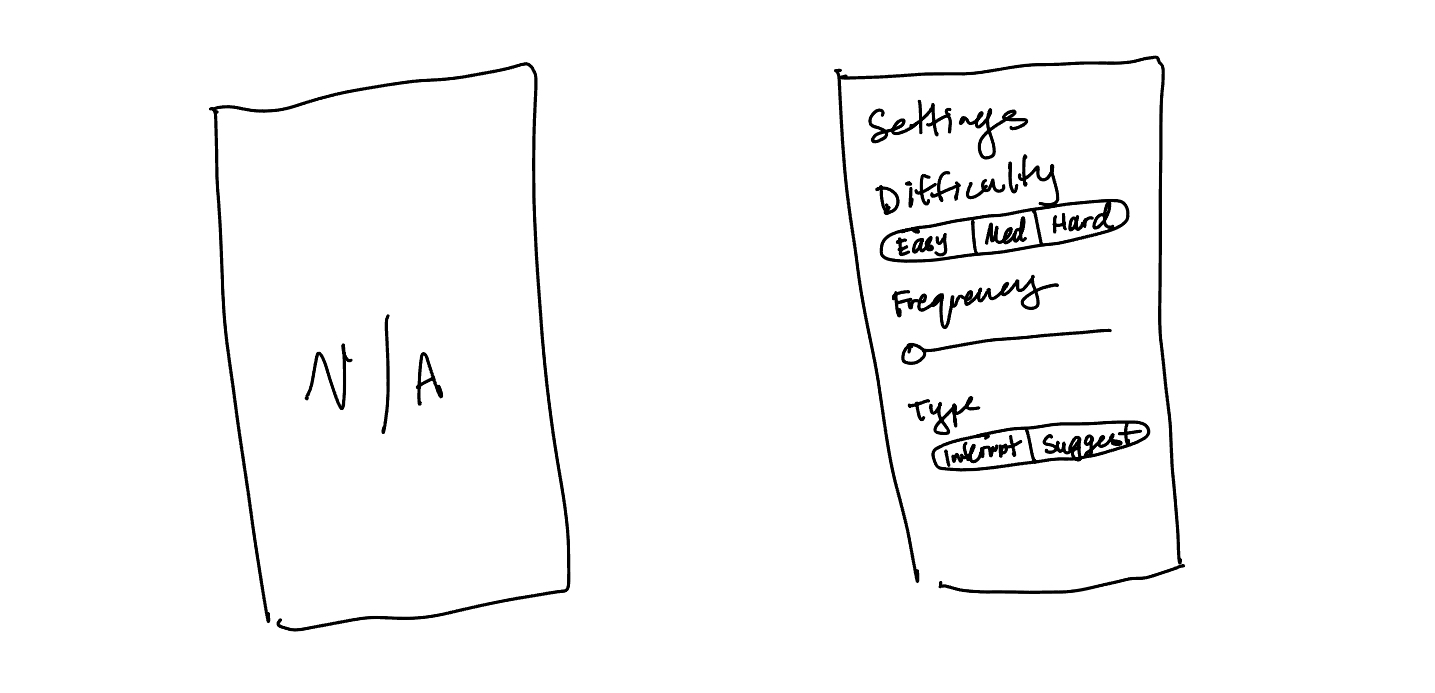 N/A
Settings
Difficulty
Easy Med Hard
Frequency
Type
Interrupt Suggest